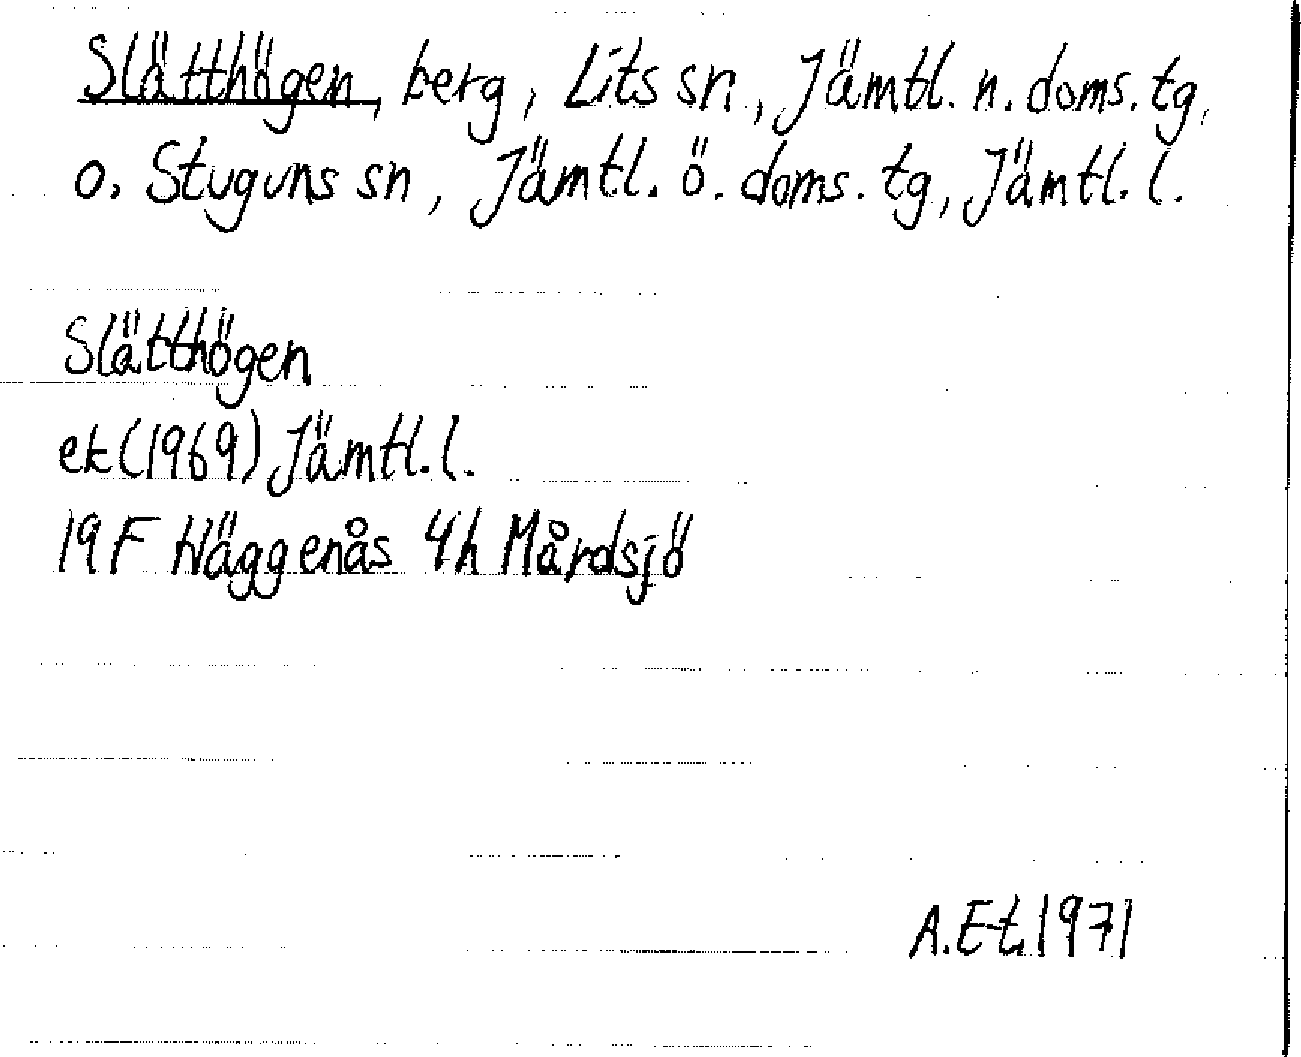 Slätthögen, berg, Lits sn., Jämtl. n. doms. tg,
o. Stuguns sn, Jämtl. ö. doms. tg, Jämtl. l.
Slätthögen
ek (1969) Jämtl. l.
19 F Häggenås 4h Mårdsjö
A. Et. 1971